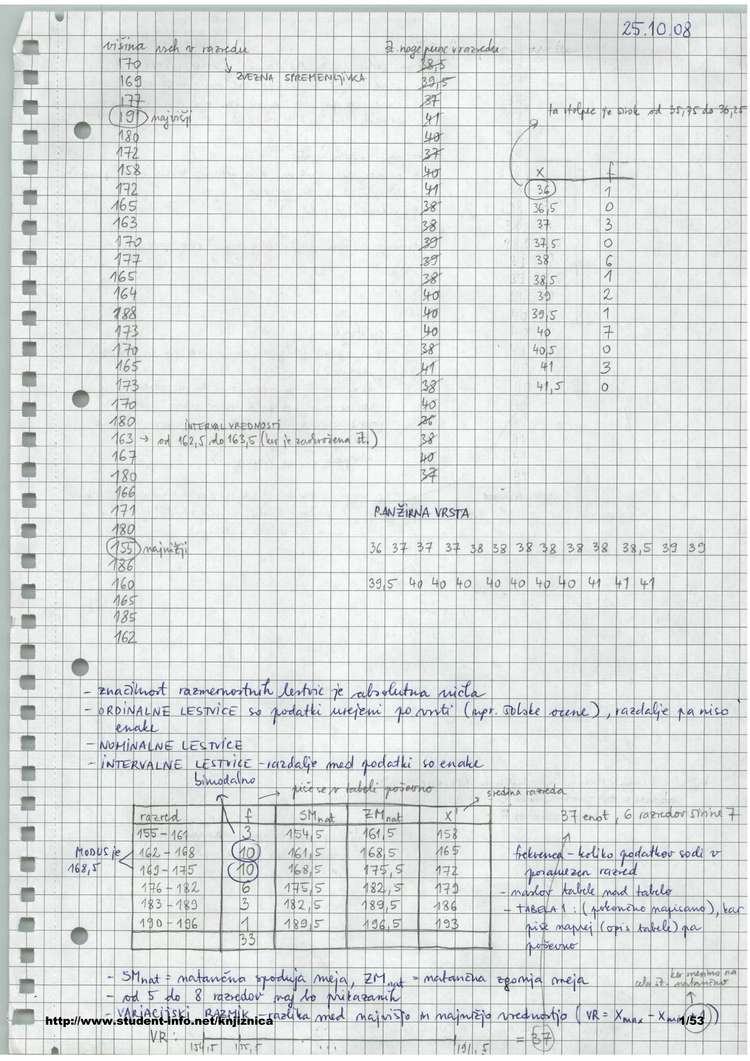 25.10.08
višina vseh v razredu
ZVEZNA SPREMENLJIVKA
170
169
177
191 najvišji
180
172
158
172
165
163
170
177
165
164
188
173
170
165
173
170
180
INTERVAL VREDNOSTI
163 → od 162,5 do 163,5 (ker je zaokrožena št.)
167
180
166
171
180
155 najnižji
186
160
165
185
162
št. noge punc v razredu
38,5
39,5
37
41
40
37
40
41
38
38
39
39
38
40
40
40
38
41
38
40
36
38
40
37
ta stolpec je širok od 35,75 do 36,25
x f
36 1
36,5 0
37 3
37,5 0
38 6
38,5 1
39 2
39,5 1
40 7
40,5 0
41 3
41,5 0
RANŽIRNA VRSTA
36 37 37 37 38 38 38 38 38 38 38,5 39 39
39,5 40 40 40 40 40 40 40 41 41 41
- značilnost razmernostnih lestvic je absolutna ničla
- ORDINALNE LESTVICE so podatki urejeni po vrsti (npr. šolske ocene), razdalje pa niso
enake
- NOMINALNE LESTVICE
- INTERVALNE LESTVICE - razdalje med podatki so enake
bimodalno
piše se v tabeli poševno
sredina razreda
razred f SMnat ZMnat X'
155-161 3 154,5 161,5 158
162-168 10 161,5 168,5 165
169-175 10 168,5 175,5 172
176-182 6 175,5 182,5 179
183-189 3 182,5 189,5 186
190-196 1 189,5 196,5 193
33
MODUS je
168,5
37 enot, 6 razredov širine 7
frekvenca - koliko podatkov sodi v
posamezen razred
- naslov tabele nad tabelo
- TABELA 1: (pokončno napisano), kar
piše naprej (opis tabele) pa
poševno
- SMnat = natančna spodnja meja, ZMnat = natančna zgornja meja
- od 5 do 8 razredov naj bo prikazanih
ker merimo na
cela št. natančno
- VARIACIJSKI RAZMIK - razlika med najvišjo in najnižjo vrednostjo (VR = Xmax - Xmin + 1)
http://www.student-info.net/knjiznica
1/53
VR: 154,5 155,5 191,5 = 37